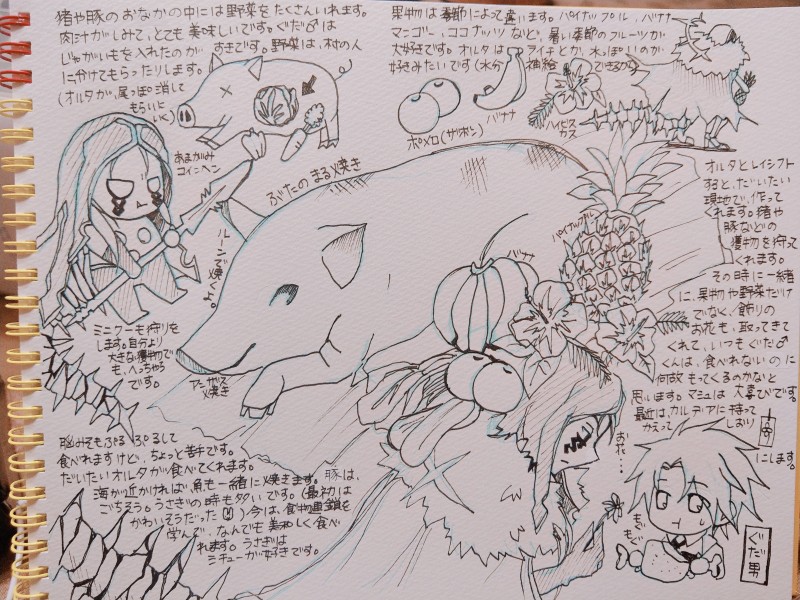 猪や豚のおなかの中には野菜をたくさんいれます。
肉汁がしみて、とても美味しいです。ぐだ♂は
じゃがいもを入れたのが すきです。野菜は、村の人
にわけてもらったりします。
(オルタが、尾っぽ消して
もらいに
いく)
果物は季節によって違います。パイナップル、バナナ
マンゴー、ココナッツなど。暑い季節のフルーツが
大好きです。オルタは ライチとか、水っぽいのが
好きみたいです(水分 補給 できるから
ポメロ(ザボン)
バナナ
ハイビス
カス
あまがみ
コインヘン
ぶたのまる焼き
ルーンで焼くよ。
パイナップル
バナナ
オルタとレイシフト
すると、だいたい
現地で、作って
くれます。猪や
豚などの
獲物を狩って
くれます。
その時に一緒
に、果物や野菜だけ
でなく、飾りの
お花も、取ってきて
くれて、いつもぐだ♂
くんは、食べれないのに
何故もってくるのかなと
思います。マシュは大喜びです。
最近は、カルデアに持って
かえって しおり
にします。
ミニクーも狩りを
します。自分より
大きな獲物で
も、へっちゃら
です。
焼き
脳みそもぷるぷるして
食べれますけど、ちょっと苦手です。
だいたいオルタが食べてくれます。
海が近かければ、魚も一緒に焼きます。豚は、
ごちそう。うさぎの時も多いです。(最初は
かわいそうだった)今は、食物連鎖を
学んで、なんでも美味しく食べ
れます。うさぎは
シチューが好きです。
お花…
もぐ
もぐ
ぐだ男